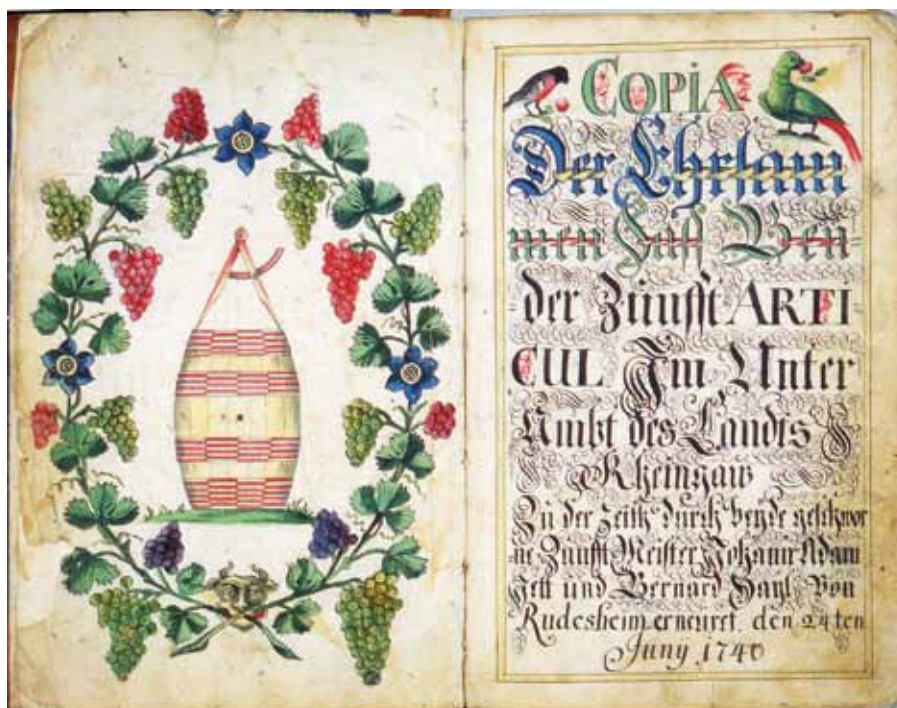 COPIA
Der Ehrsam
men Fass Ben=
=der Zunfft ARTI
CUL Im Unter
Ambt des Landts
Rheingaw
Zu der Zeith durch beyde geschwor
ne Zunfft Meister Johann Adam
Jett und Bernard von
Rudesheim erneuret den 24ten
Juny 1740